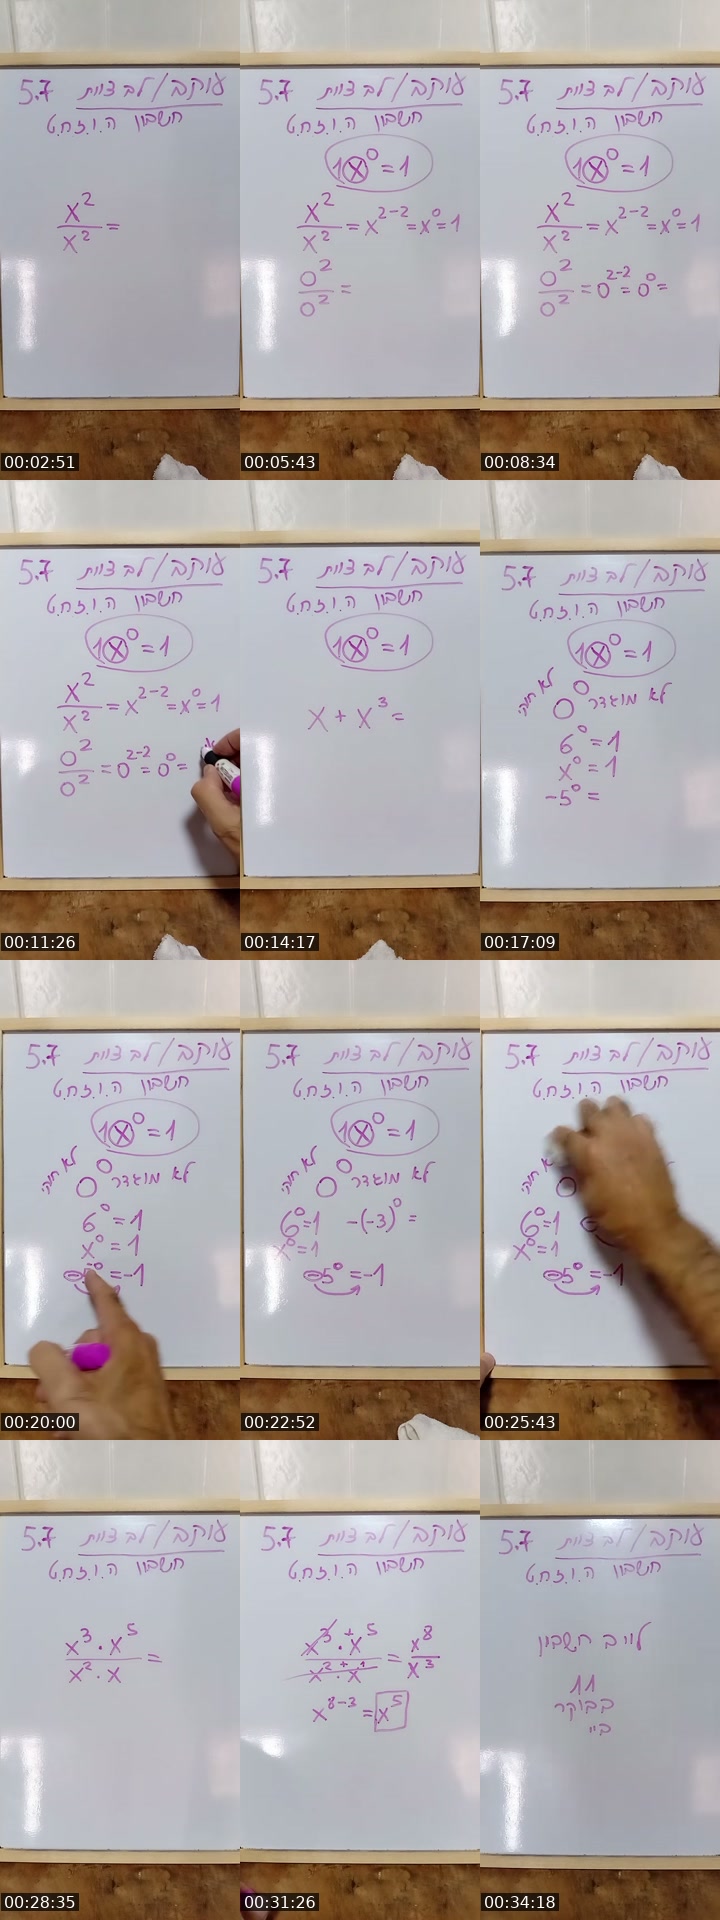 5.7 עוקב/לב צוות
חשבון ה.ו.ז.ח.ט
x² / x² =
00:02:51
5.7 עוקב/לב צוות
חשבון ה.ו.ז.ח.ט
1x⁰ = 1
x² / x² = x²⁻² = x⁰ = 1
0² / 0² =
00:05:43
5.7 עוקב/לב צוות
חשבון ה.ו.ז.ח.ט
1x⁰ = 1
x² / x² = x²⁻² = x⁰ = 1
0² / 0² = 0²⁻² = 0⁰ =
00:08:34
5.7 עוקב/לב צוות
חשבון ה.ו.ז.ח.ט
1x⁰ = 1
x² / x² = x²⁻² = x⁰ = 1
0² / 0² = 0²⁻² = 0⁰ =
00:11:26
5.7 עוקב/לב צוות
חשבון ה.ו.ז.ח.ט
1x⁰ = 1
x + x³ =
00:14:17
5.7 עוקב/לב צוות
חשבון ה.ו.ז.ח.ט
1x⁰ = 1
0⁰ לא מוגדר
6⁰ = 1
x⁰ = 1
-5⁰ =
00:17:09
5.7 עוקב/לב צוות
חשבון ה.ו.ז.ח.ט
1x⁰ = 1
0⁰ לא מוגדר
6⁰ = 1
x⁰ = 1
-5⁰ = -1
00:20:00
5.7 עוקב/לב צוות
חשבון ה.ו.ז.ח.ט
1x⁰ = 1
0⁰ לא מוגדר
6⁰ = 1 -(-3)⁰ =
x⁰ = 1
-5⁰ = -1
00:22:52
5.7 עוקב/לב צוות
חשבון ה.ו.ז.ח.ט
6⁰ = 1
x⁰ = 1
-5⁰ = -1
00:25:43
5.7 עוקב/לב צוות
חשבון ה.ו.ז.ח.ט
x³ · x⁵ / x² · x =
00:28:35
5.7 עוקב/לב צוות
חשבון ה.ו.ז.ח.ט
x³ + · x⁵ / x² + · x¹ = x⁸ / x³
x⁸⁻³ = x⁵
00:31:26
5.7 עוקב/לב צוות
חשבון ה.ו.ז.ח.ט
לייב חשבון
11
בבוקר
ביי
00:34:18